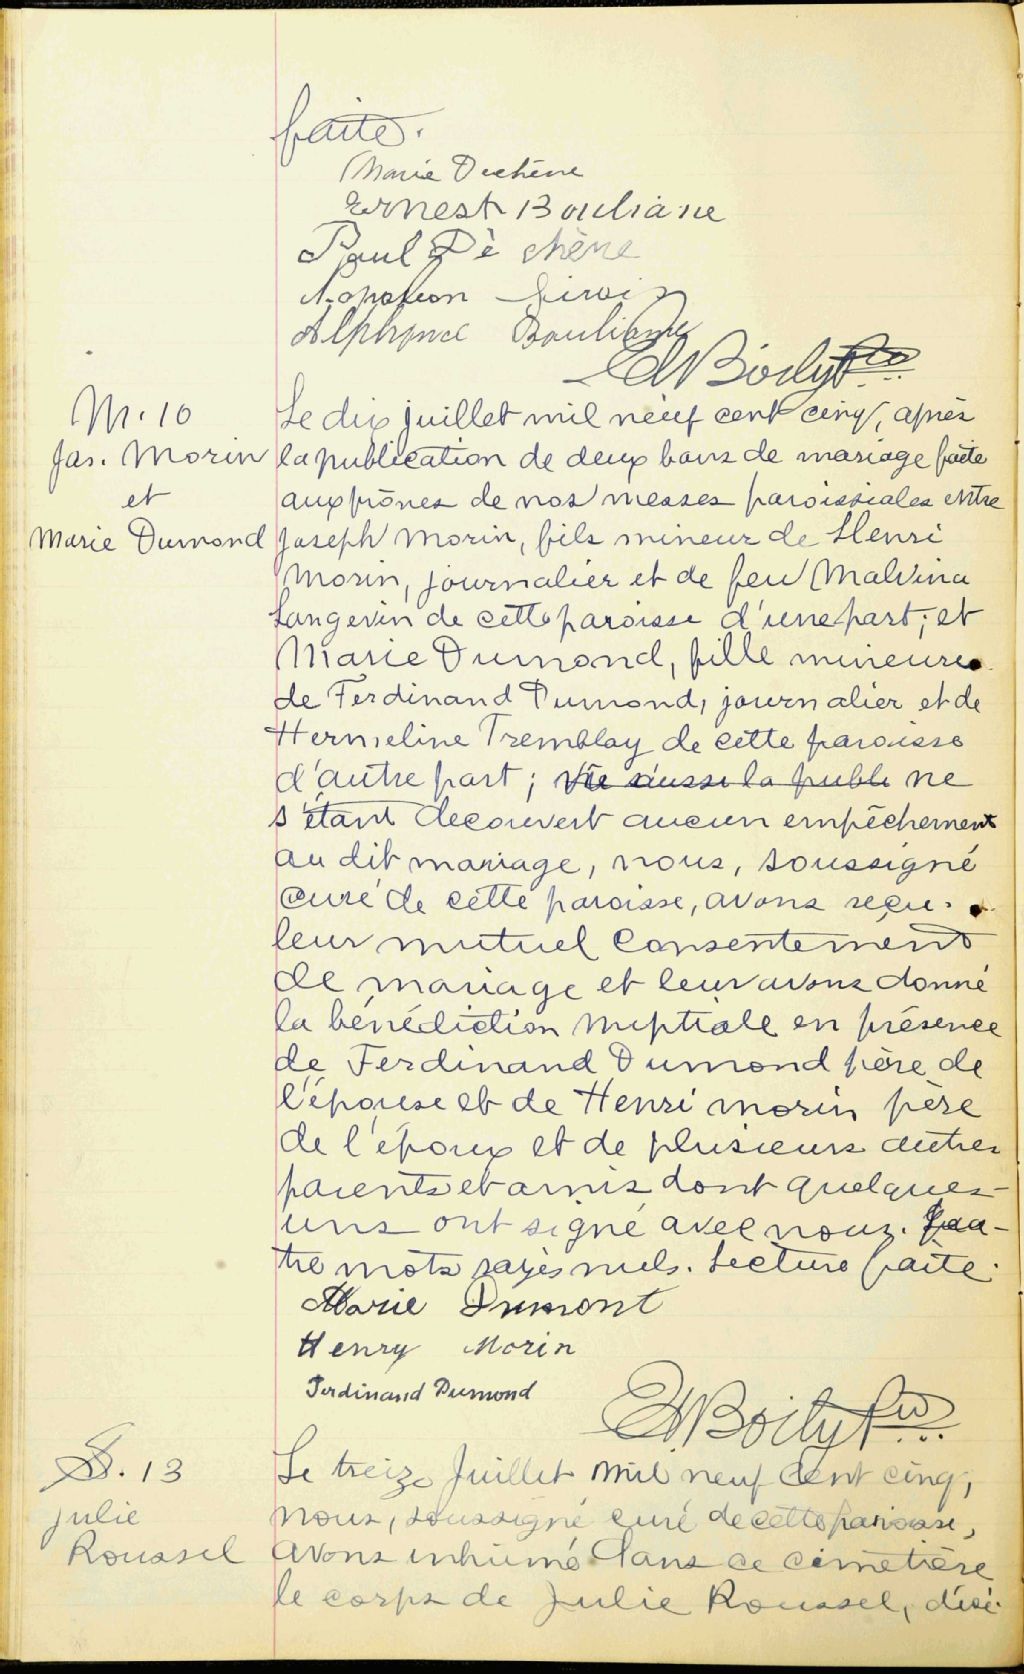 faite.
Marie Dechêne
Ernest Bouliane
Paul Dè chêne
Napoléon Sirois
Alphonse Bouliane
Ed Boily Ptre
M. 10
Jas. Morin
et
Marie Dumond
Le dix juillet mil neuf cent cinq, après
la publication de deux bans de mariage faite
aux prônes de nos messes paroissiales entre
Joseph Morin, fils mineur de Henri
Morin, journalier et de feu Malvina
Langevin de cette paroisse d'une part; et
Marie Dumond, fille mineure
de Ferdinand Dumond, journalier et de
Hermeline Tremblay de cette paroisse
d'autre part; vu aussi la publi ne
s'étant decouvert aucun empêchement
au dit mariage, nous, soussigné
curé de cette paroisse, avons reçu.
leur mutuel consentement
de mariage et leur avons donné
la bénédiction nuptiale en présence
de Ferdinand Dumond père de
l'épouse et de Henri Morin père
de l'époux et de plusieurs autres
parents et amis dont quelques-
uns ont signé avec nous. Qua-
tre mots rayés nuls. Lecture faite.
Marie Dumont
Henry Morin
Ferdinand Dumond
Ed Boily Ptre
S. 13
Julie
Roussel
Le treize Juillet mil neuf cent cinq,
nous, soussigné curé de cette paroisse,
avons inhumé dans ce cimetière
le corps de Julie Roussel, décé-